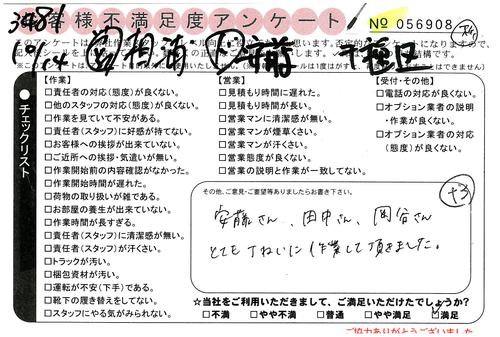 お客様不満足度アンケート
№ 056908
千種区
チェックリスト
【作業】
□責任者の対応(態度)が良くない。
□他のスタッフの対応(態度)が良くない。
□作業を見ていて不安がある。
□責任者(スタッフ)に好感が持てない。
□お客様への挨拶が出来ていない。
□ご近所への挨拶・気遣いが無い。
□作業開始前の内容確認がなかった。
□作業開始時間が遅れた。
□荷物の取り扱いが雑である。
□お部屋の養生が出来ていない。
□作業時間が長すぎる。
□責任者(スタッフ)に清潔感が無い。
□責任者(スタッフ)が汗くさい。
□トラックが汚い。
□梱包資材が汚い。
□運転が不安(下手)である。
□靴下の履き替えをしてない。
□スタッフにやる気がみられない。
【営業】
□見積もり時間に遅れた。
□見積もり時間が長い。
□営業マンに清潔感が無い。
□営業マンが煙草くさい。
□営業マンが汗くさい。
□営業態度が良くない。
□営業の説明と作業が一致してない。
【受付・その他】
□電話の対応が良くない。
□オプション業者の説明
・作業が良くない。
□オプション業者の対応
(態度)が良くない。
その他、ご意見・ご要望等ありましたらお書き下さい。
+3
安藤さん、田中さん、岡谷さん
とてもていねいに作業して頂きました。
☆当社をご利用いただきまして、ご満足いただけたでしょうか?
□不満 □やや不満 □普通 □やや満足 □満足
ご協力ありがとうございました